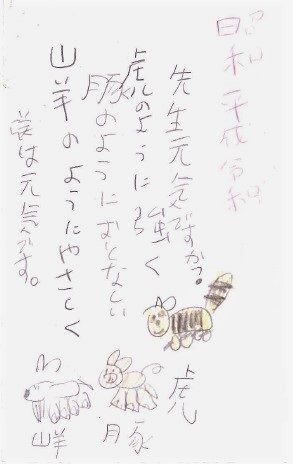 昭和平成令和
先生元気ですか。
虎のように強く
豚のようにおとなしい
山羊のようにやさしく
僕は元気です。
虎
豚
山羊